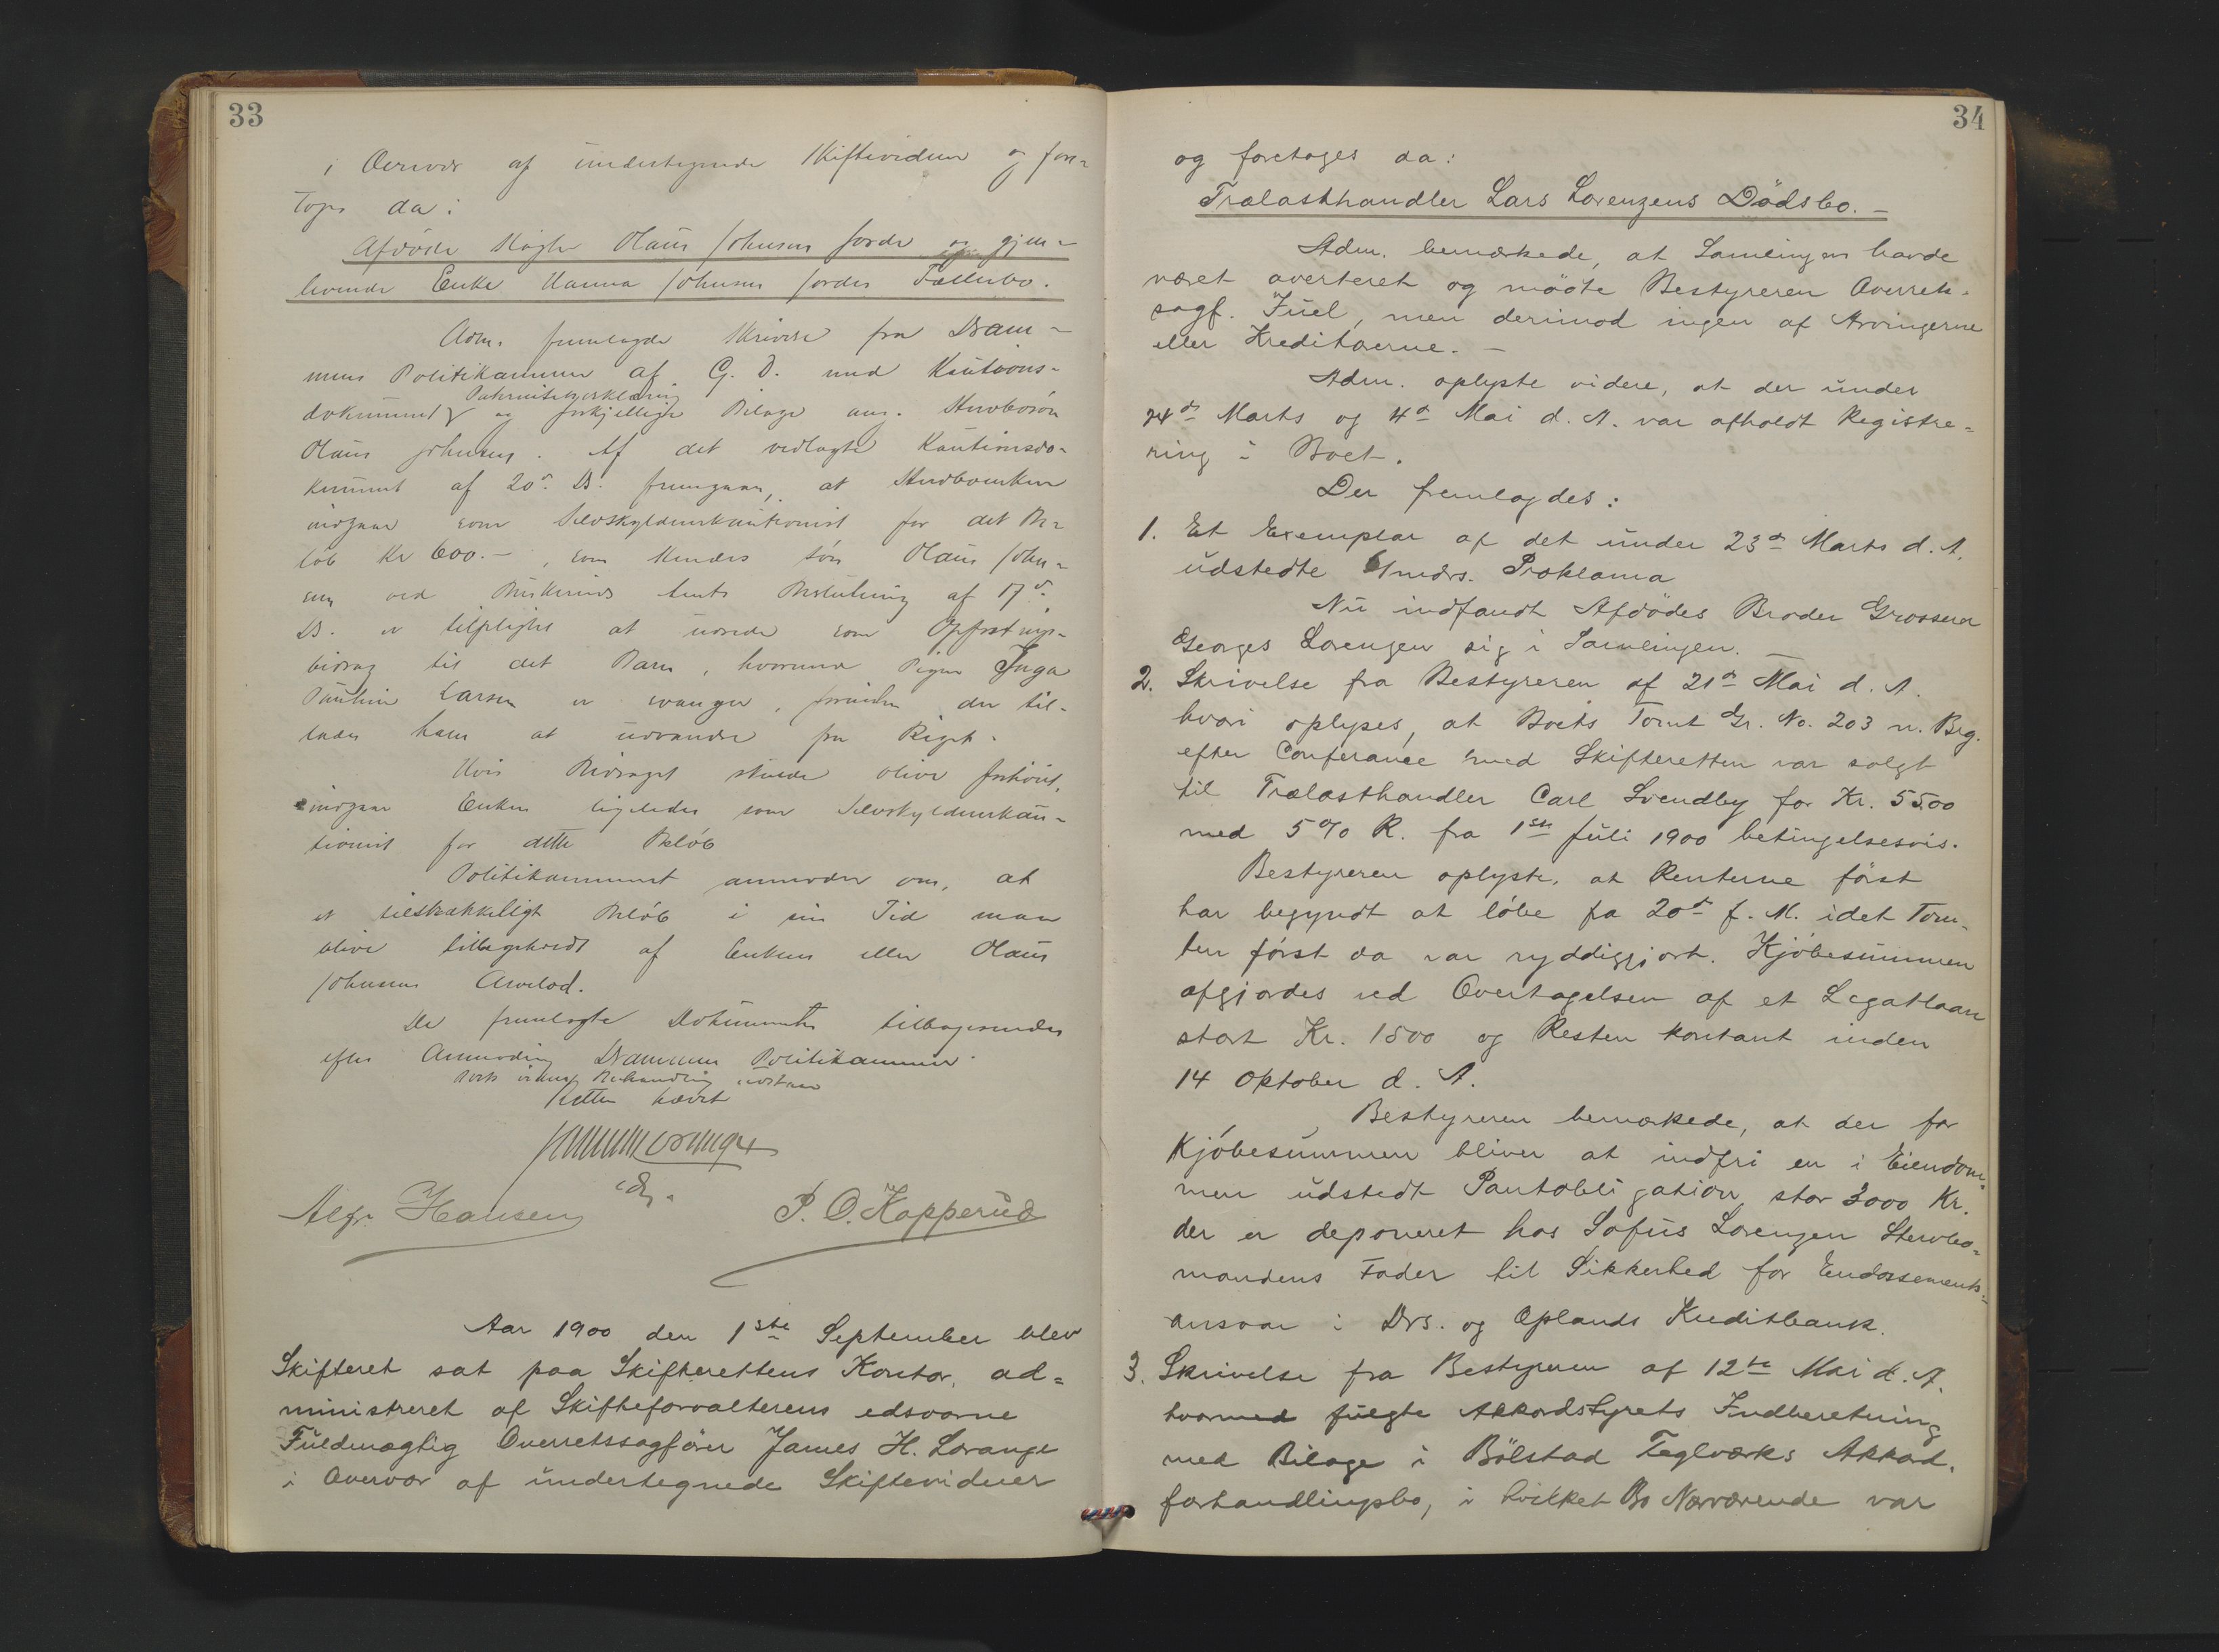 33
i Overvær af undertegnede Skiftevidner og fore-
toges da:
Afdøde Hans Johnsens forde og gjen-
levende Enke Hanna Johnsens fordes Fællesbo.
Adm. fremlagde Skrivelse fra Dram-
mens Politikammer af G. D. med Kautions-
Paternitetserklæring
dokument og forskjellige Bilage ang. Stervbosøn
Olaus Johnsen. Af det vedlagte Kautionsdo-
kument af 20de Ds. fremgaar, at Stervboenken
indgaar som Selvskyldnerkautionist for det Be-
løb Kr 600.-, som hendes søn Olaus John-
sen ved Buskeruds Amts Beslutning af 17de
Ds. er tilpligtet at udrede som Opfostrings-
bidrag til det Barn, hvormed Pigen Inga
Pauline Larsen er svanger, forinden der til-
lades ham at udvandre fra Riget.
Hvis Bidraget skulde blive forhøiet,
indgaar Enken ligeledes som Selvskyldnerkau-
tionist for dette Beløb
Politikammeret anmoder om, at
et tilstrækkeligt Beløb i sin Tid maa
blive tilbageholdt af Enkens eller Olaus
Johnsens Arvelod.
De fremlagte Dokumenter tilbagesendes
efter Anmodning Drammens Politikammer.
Boets videre Behandling udstaar
Retten hævet
James H. Lorange
cst.
Alfr. Hansen P. O. Kopperud
Aar 1900 den 1ste September blev
Skifteret sat paa Skifterettens Kontor, ad=
ministreret af Skifteforvalterens edsvorne
Fuldmægtig Overretssagfører James H. Lorange
i Overvær af undertegnede Skiftevidner
34
og foretoges da:
Trælasthandler Lars Lorenzens Dødsbo. –
Adm. bemærkede, at Samlingen havde
været averteret og mødte Bestyreren Overrets-
sagf. Juel, men derimod ingen af Arvingerne
eller Kreditorerne. –
Adm. oplyste videre, at der under
24de Marts og 4de Mai d. A. var afholdt Registre=
ring i Boet.
Der fremlagdes:
1. Et Exemplar af det under 23de Marts d. A.
udstedte 6 mdrs. Proklama
Nu indfandt Afdødes Broder Grosserer
Georges Lorenzen sig i Samlingen. –
2. Skrivelse fra Bestyreren af 21de Mai d. A.
hvori oplyses, at Boets Tomt Gr. No. 203 n. Brg.
efter Conferance med Skifteretten var solgt
til Trælasthandler Carl Svendby for Kr. 5500
med 5 % R. fra 1ste Juli 1900 betingelsesvis.
Bestyreren oplyste, at Renterne først
har begyndt at løbe fra 20de f. M. idet Tom-
ten først da var ryddiggjort. Kjøbesummen
afgjordes ved Overtagelsen af et Legatlaan
stort Kr. 1500 og Resten kontant inden
14 Oktober d. A.
Bestyreren bemærkede, at der for
Kjøbesummen bliver at indfri en i Eiendom-
men udstedt Pantobligation, stor 3000 Kr.
der er deponeret hos Sofus Lorenzen Stervbo=
mandens Fader til Sikkerhed for Endossements-
ansvar i Drs. og Oplands Kreditbank.
3. Skrivelse fra Bestyreren af 12te Mai d. A.
hvormed fulgte Akkordstyrets Indberetning
med Bilage i Bølstad Teglværks Akkord.
forhandlingsbo, i hvilket Bo Nærværende var